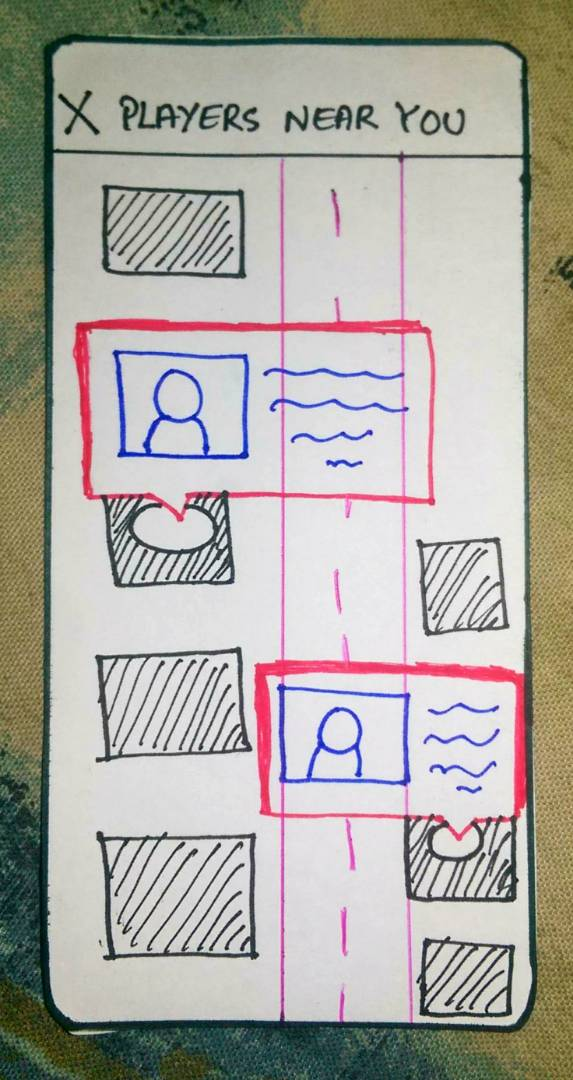 X PLAYERS NEAR YOU